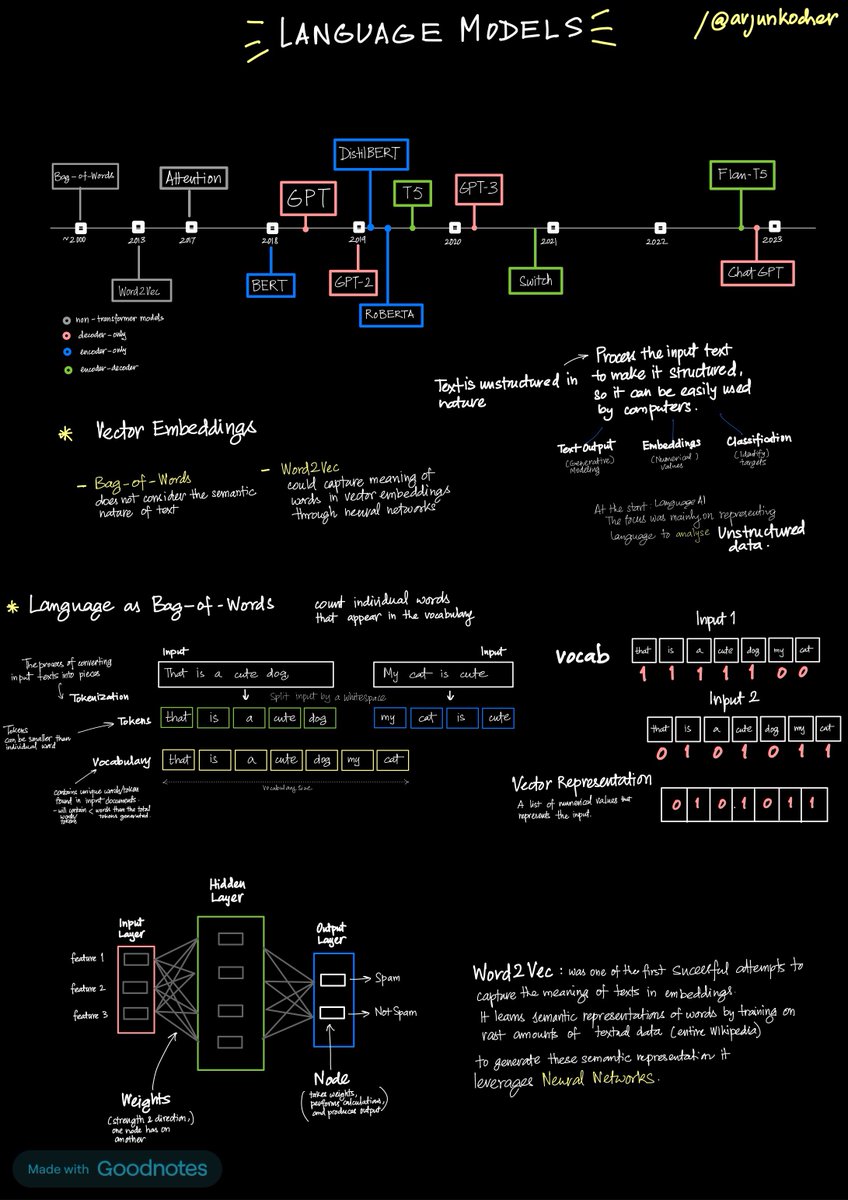 LANGUAGE MODELS
/@arjunkocher
DistilBERT
Bag-of-Words
Attention
GPT
T5
GPT-3
Flan-T5
~2000
2013
2017
2018
2019
2020
2021
2022
2023
Word2Vec
BERT
GPT-2
RoBERTA
Switch
ChatGPT
non-transformer models
decoder-only
encoder-only
encoder-decoder
Text is unstructured in
nature
Process the input text
to make it structured,
so it can be easily used
by computers.
Text Output
(Generative)
Modeling
Embeddings
(Numerical)
values
Classification
(Identify)
targets
* Vector Embeddings
- Bag-of-Words
does not consider the semantic
nature of text
- Word2Vec
could capture meaning of
words in vector embeddings
through neural networks
At the start: Language AI
The focus was mainly on representing
language to analyse Unstructured
data.
* Language as Bag-of-Words
count individual words
that appear in the vocabulary
The process of converting
input texts into pieces
Tokenization
Input
That is a cute dog
Input
My cat is cute
Split input by a whitespace
Tokens
can be smaller than
individual word
Tokens
that is a cute dog
my cat is cute
Vocabulary
that is a cute dog my cat
vocabulary size
contains unique words/token
found in input documents
- will contain < words than the total
words/
tokens
tokens generated.
Input 1
vocab
that is a cute dog my cat
1 1 1 1 1 0 0
Input 2
that is a cute dog my cat
0 1 0 1 0 1 1
Vector Representation
A list of numerical values that
represents the input.
0 1 0 1 0 1 1
Input
Layer
Hidden
Layer
Output
Layer
feature 1
feature 2
feature 3
Spam
Not Spam
Weights
(strength & direction,)
one node has on
another
Node
(takes weights,
performs calculation,
and produces output)
Word2Vec : was one of the first succesful attempts to
capture the meaning of texts in embeddings.
It learns semantic representations of words by training on
vast amounts of textual data (entire Wikipedia)
to generate these semantic representation it
leverages Neural Networks.
Made with Goodnotes